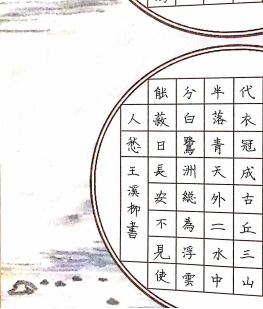 代衣冠成古丘三山
半落青天外二水中
分白鷺洲總為浮雲
能蔽日長安不見使
人愁 王溪柳書